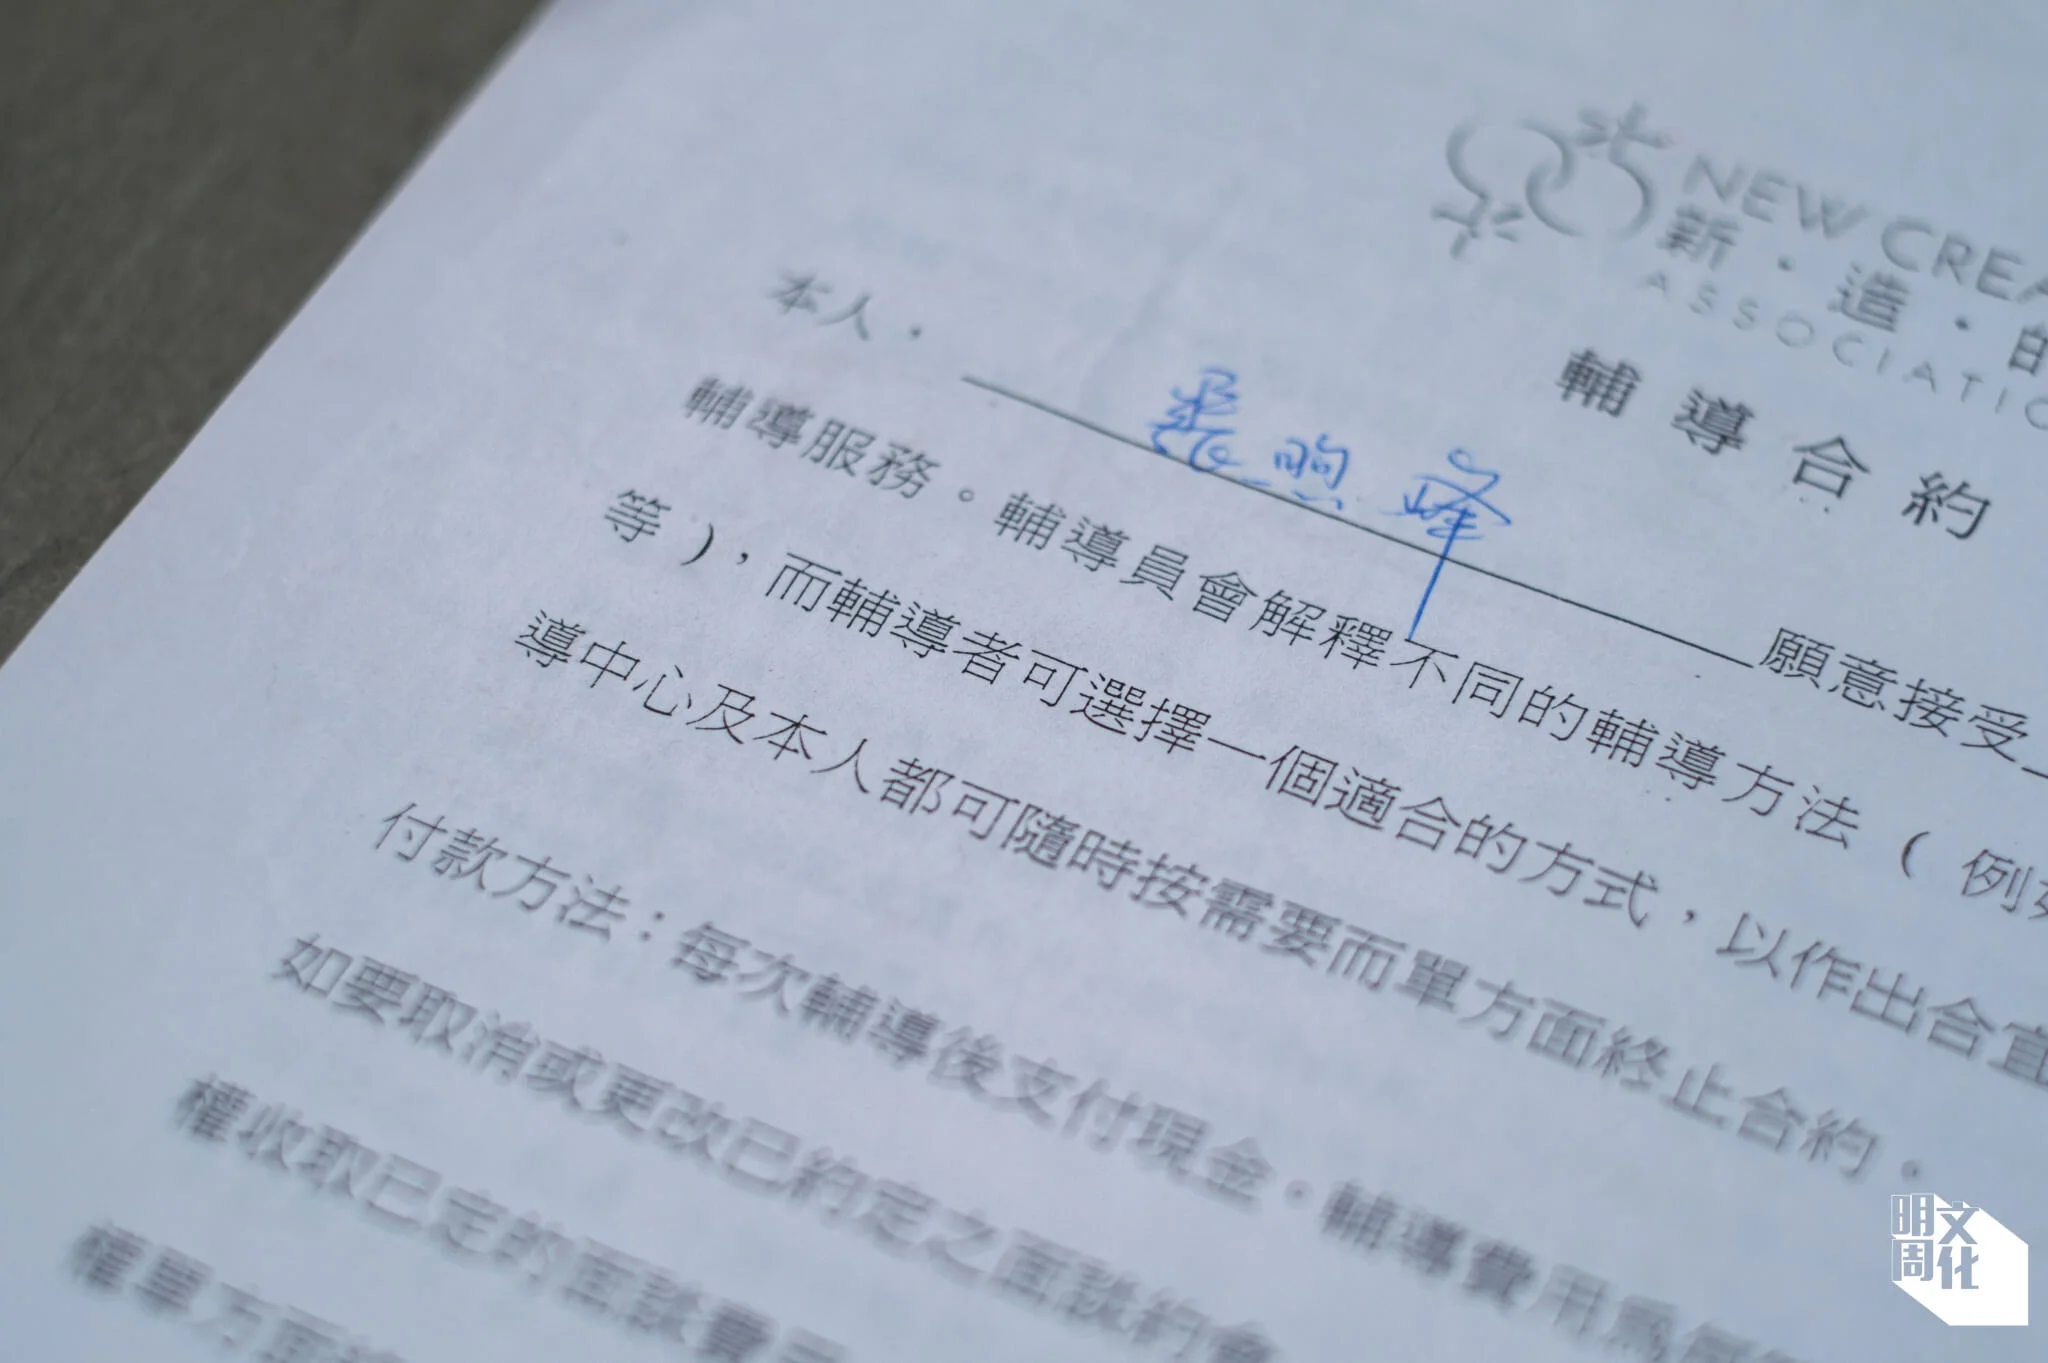 NEW CREA
新·造·的
ASSOCIATIO
輔導合約
本人， 煦峰 願意接受
輔導服務。輔導員會解釋不同的輔導方法（例如
等），而輔導者可選擇一個適合的方式，以作出合宜
導中心及本人都可隨時按需要而單方面終止合約。
付款方法：每次輔導後支付現金。輔導費用為
如要取消或更改已約定之面談約會
權收取已定的面談費
權單方面
明周文化